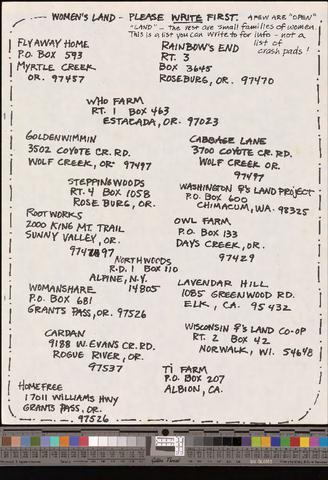 WOMEN'S LAND - PLEASE WRITE FIRST. A FEW ARE "OPEN"
"LAND" - The rest are small families of women
This is a list you can write to for info - not a
list of
crash pads!
FLY AWAY HOME
P.O. BOX 593
MYRTLE CREEK
OR. 97457
RAINBOW'S END
RT. 3
BOX 3645
ROSEBURG, OR. 97470
WHO FARM
RT. 1 BOX 463
ESTACADA, OR. 97023
GOLDENWIMMIN
3502 COYOTE CR. RD.
WOLF CREEK, OR 97497
CABBAGE LANE
3700 COYOTE CR. RD.
WOLF CREEK OR.
97497
STEPPINGWOODS
RT. 4 BOX 105B
ROSEBURG, OR.
WASHINGTON ♀'S LAND PROJECT
P.O. BOX 600
CHIMACUM, WA. 98325
ROOTWORKS
2000 KING MT. TRAIL
SUNNY VALLEY, OR.
97497
OWL FARM
P.O. BOX 133
DAYS CREEK, OR.
97429
NORTHWOODS
R.D. 1 BOX 110
ALPINE, N.Y.
14805
WOMANSHARE
P.O. BOX 681
GRANTS PASS, OR. 97526
LAVENDAR HILL
1085 GREENWOOD RD.
ELK, CA. 95432
CARDAN
9188 W. EVANS CR. RD.
ROGUE RIVER, OR.
97537
WISCONSIN ♀'S LAND CO-OP
RT. 2 BOX 42
NORWALK, WI. 54648
TI FARM
P.O. BOX 207
ALBION, CA.
HOMEFREE
17011 WILLIAMS HWY
GRANTS PASS, OR.
97526